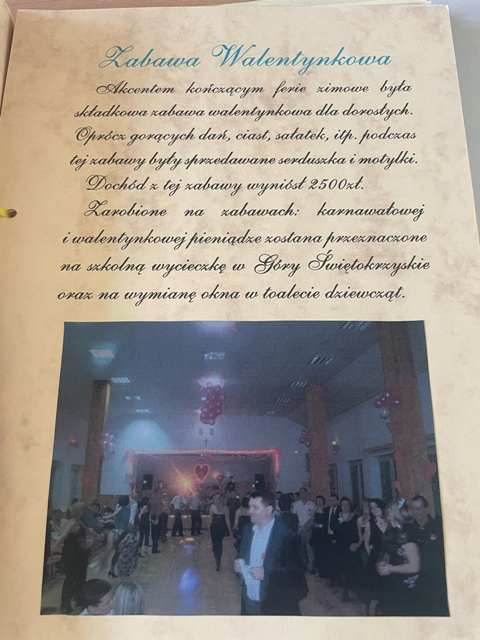 Zabawa Walentynkowa
Akcentem kończącym ferie zimowe była
składkowa zabawa walentynkowa dla dorosłych.
Oprócz gorących dań, ciast, sałatek, itp. podczas
tej zabawy były sprzedawane serduszka i motylki.
Dochód z tej zabawy wyniósł 2500zł.
Zarobione na zabawach: karnawałowej
i walentynkowej pieniądze zostaną przeznaczone
na szkolną wycieczkę w Góry Świętokrzyskie
oraz na wymianę okna w toalecie dziewcząt.